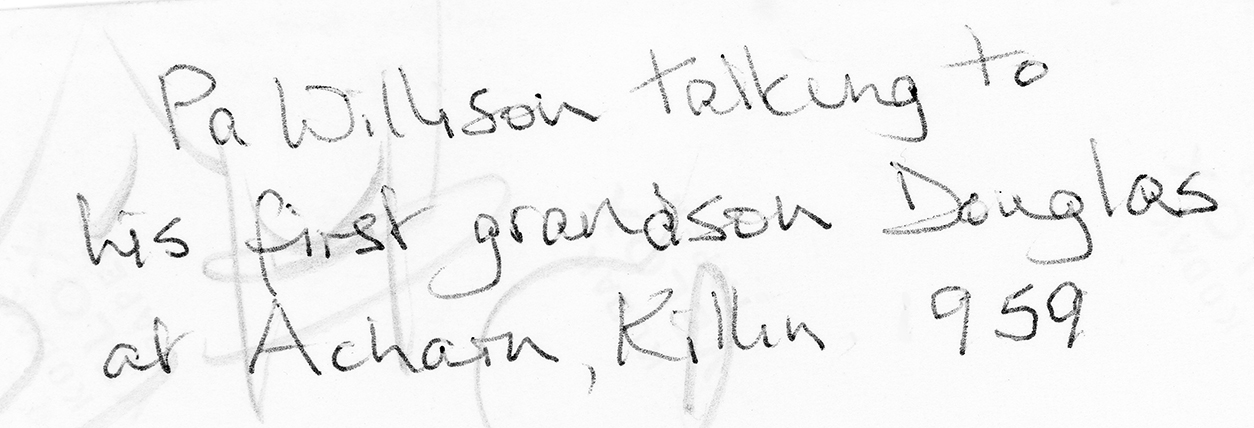 Pa Willison talking to
his first grandson Douglas
at Acharn, Killin 959